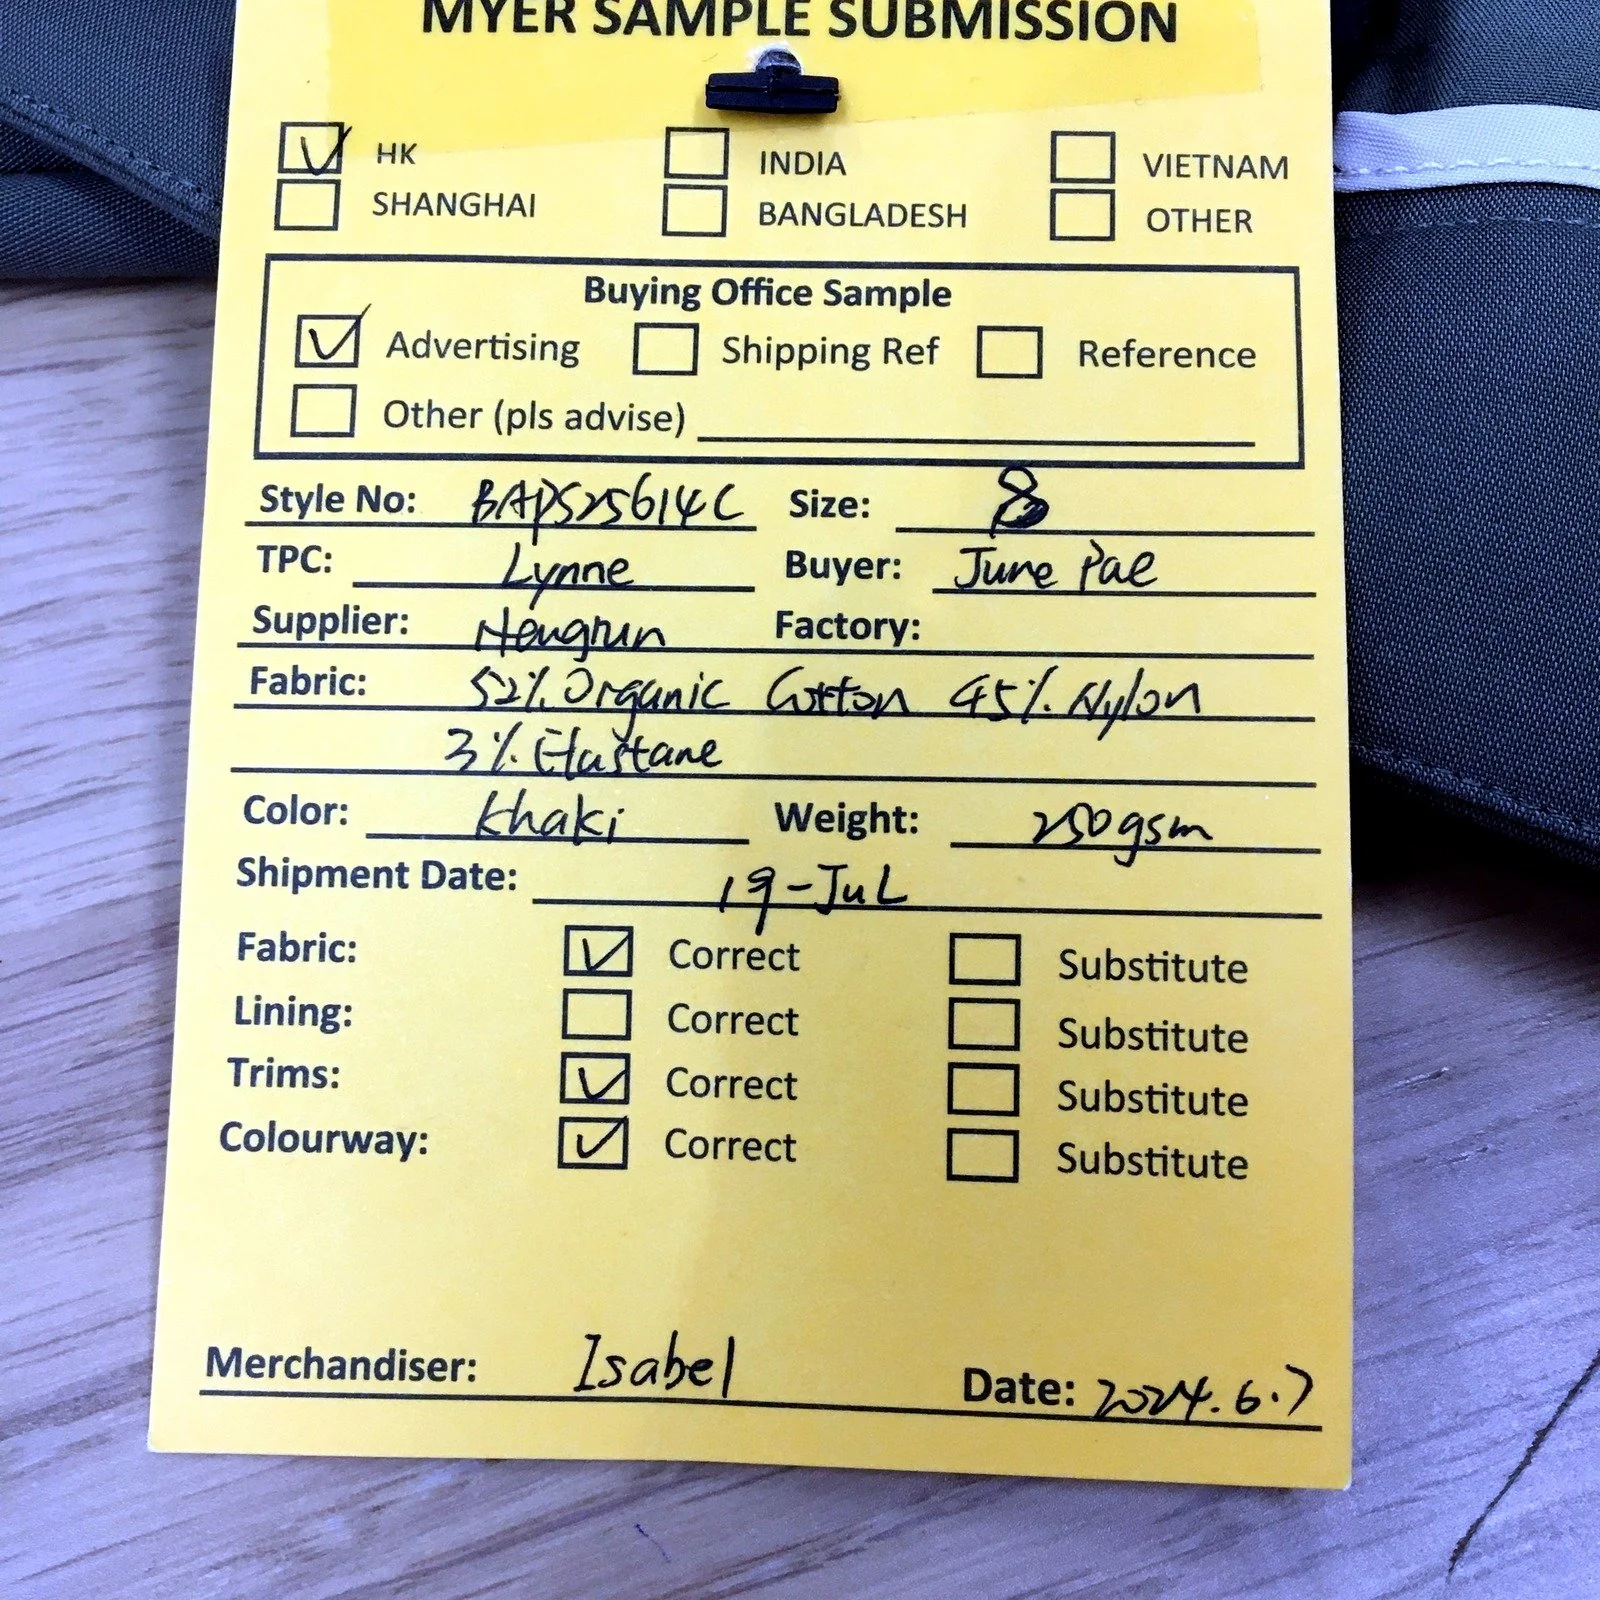 MYER SAMPLE SUBMISSION
HK INDIA VIETNAM
SHANGHAI BANGLADESH OTHER
Buying Office Sample
Advertising Shipping Ref Reference
Other (pls advise)
Style No: BAPS25614C Size: 8
TPC: Lynne Buyer: June Pae
Supplier: Hengrun Factory:
Fabric: 52% Organic Cotton 45% Nylon
3% Elastane
Color: Khaki Weight: 250gsm
Shipment Date: 19-JuL
Fabric: Correct Substitute
Lining: Correct Substitute
Trims: Correct Substitute
Colourway: Correct Substitute
Merchandiser: Isabel Date: 2024.6.7